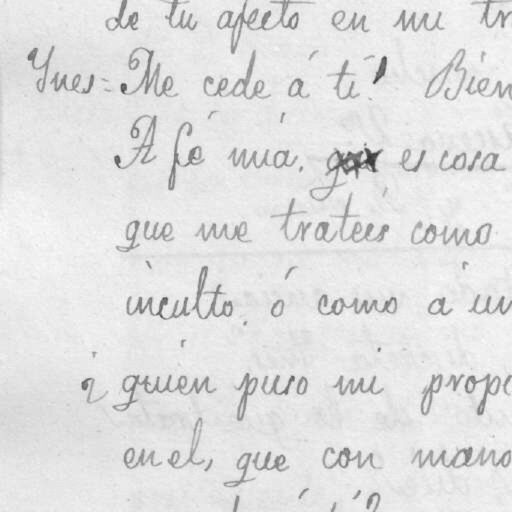 de tu afecto en mi tr
Ynes= Me cede á ti! Bien
A fé miá, es cosa
que me tratéis como
inculto, ó como á un
¿ quién puso mi propo
en el, que con mano